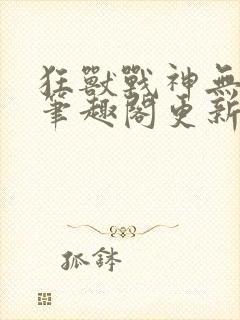 狂獸戰神無
筆趣閣更新
孤鉢